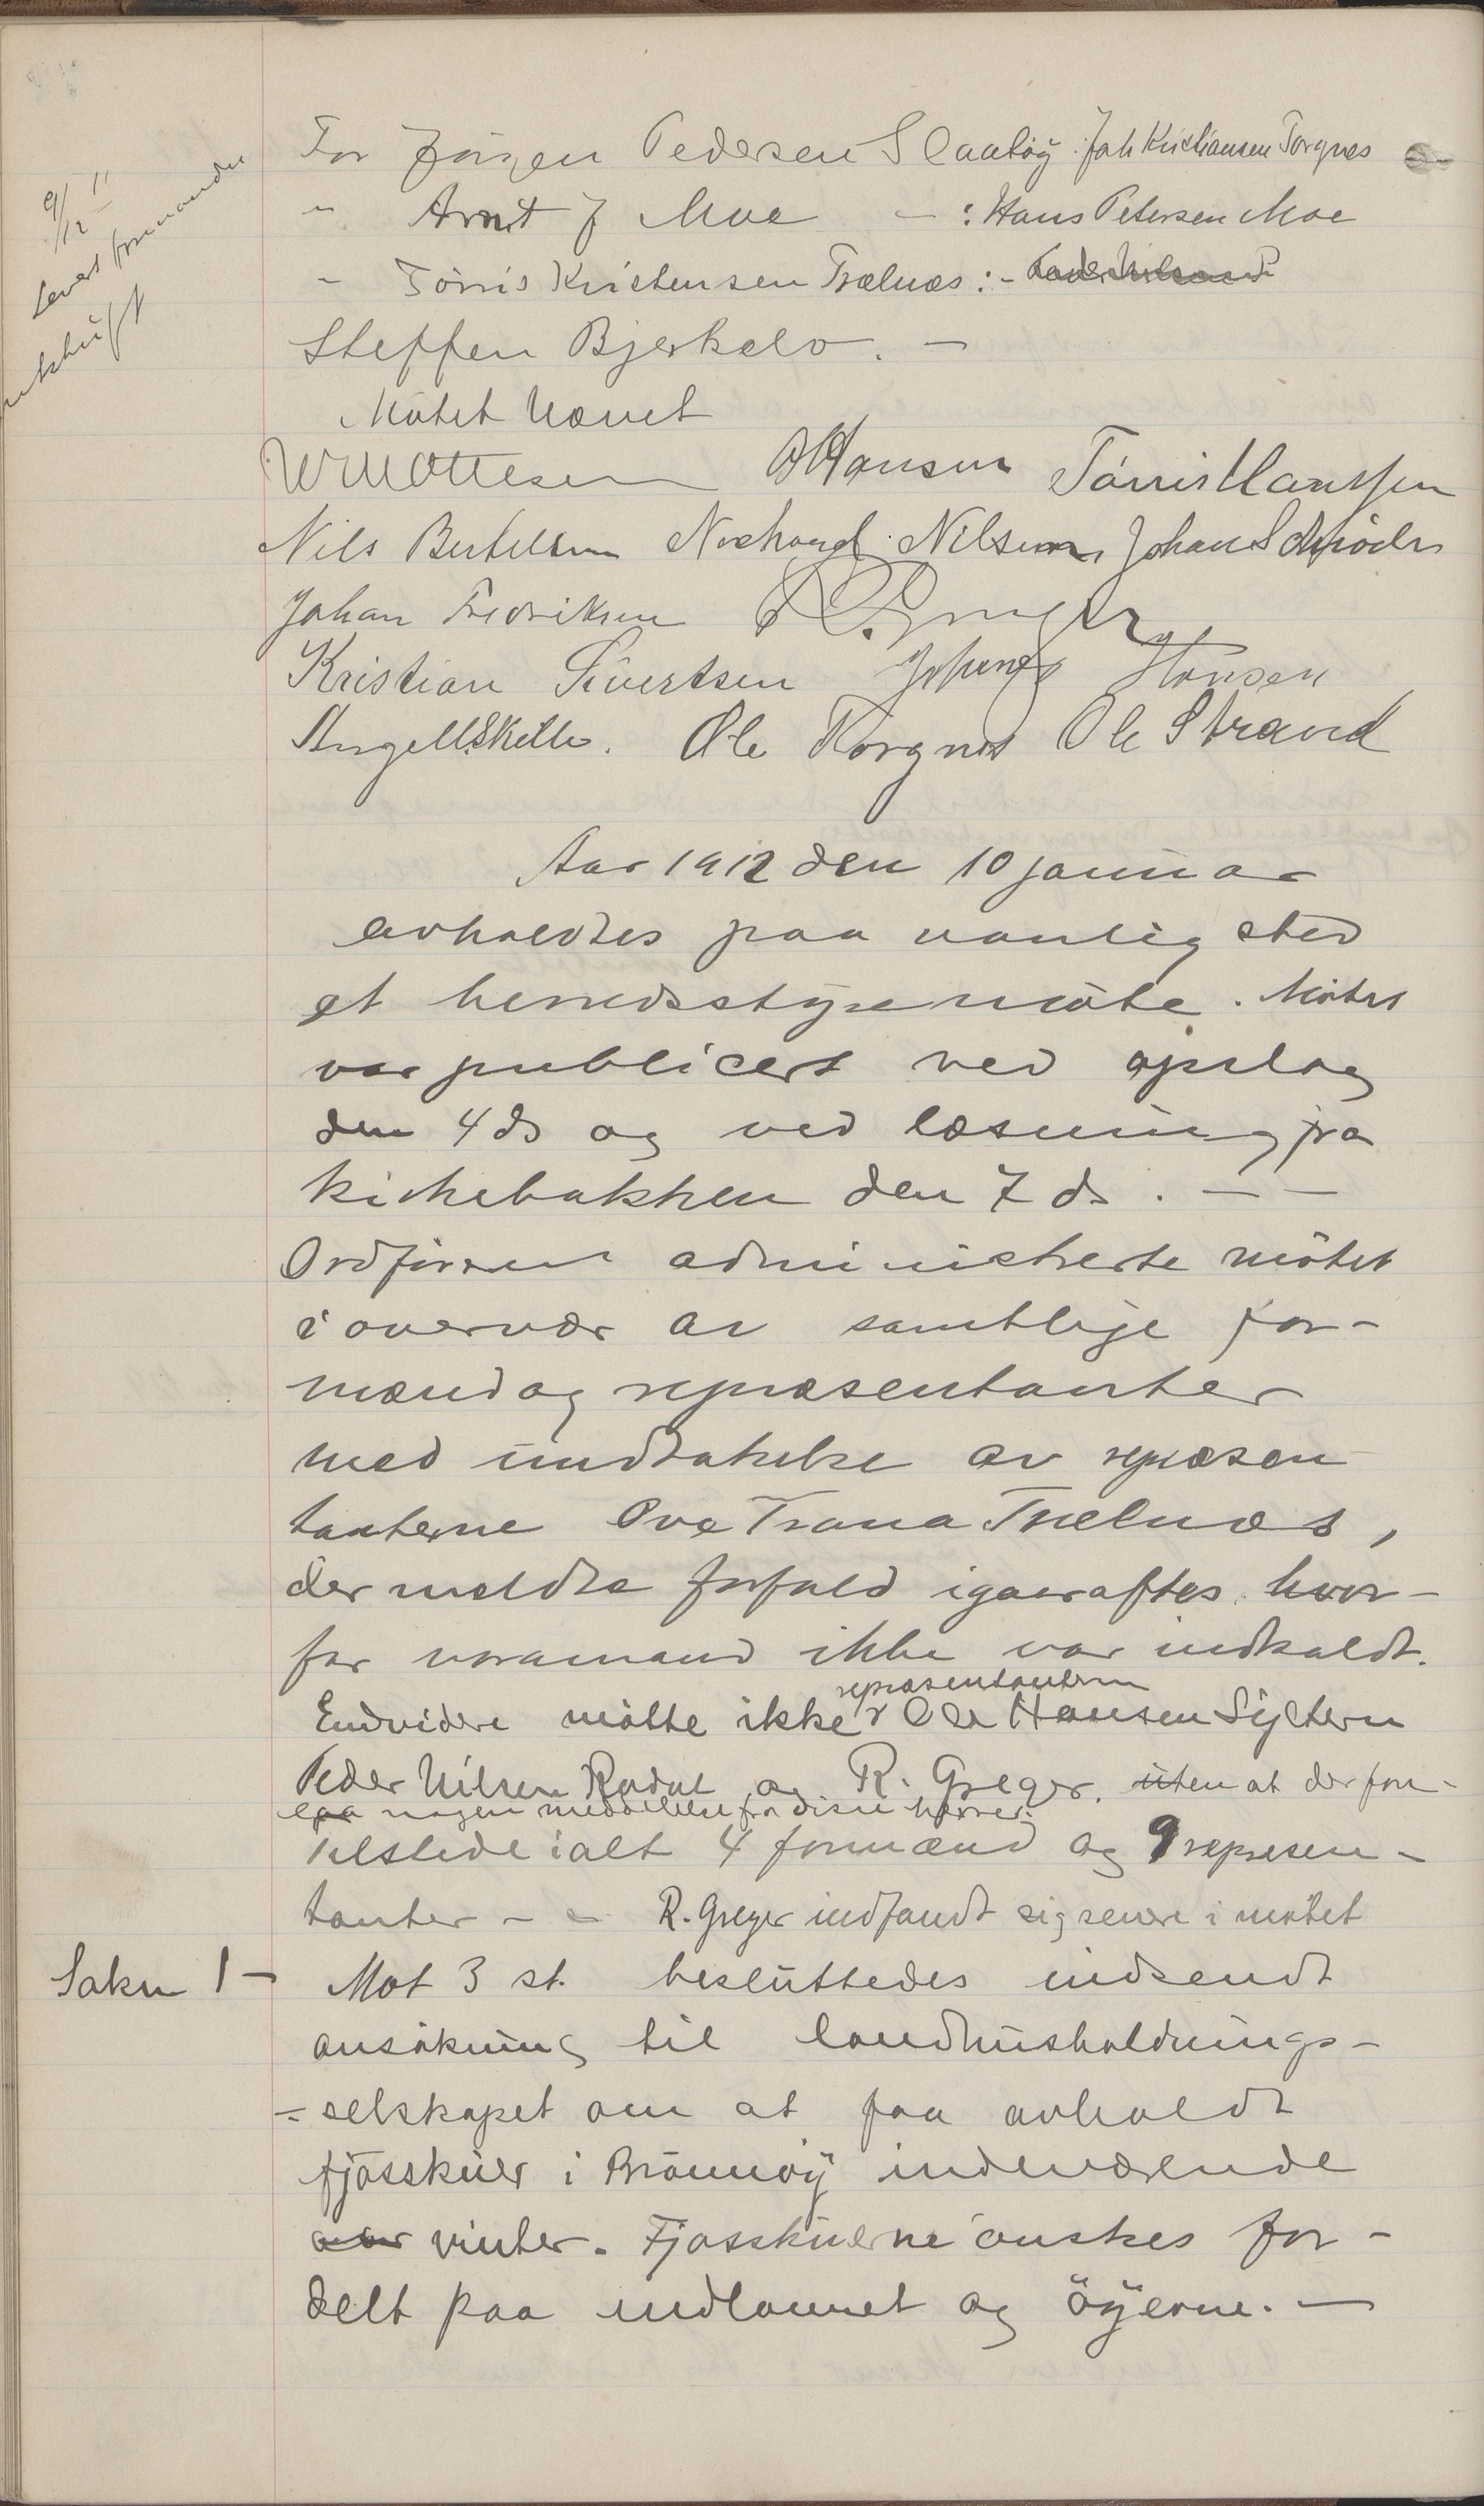 9/12 11
Levert formanden
utskrift
For Jörgen Pedersen Slaatöy : Joh Kristiansen Torgnes
" Arnt J Moe — : Hans Petersen Moe
" Törris Kristensen Trælnæs : -
Steffen Bjerkelv. —
Mötet hævet
WMOttesen OHansen Törris Hanssen
Nils Bertelsen Richard Nilsen Johan Schröder
Johan Fredriksen R. Greger
Kristian Sivertsen Johan Hansen
Angell Skille. Ole Torgnes Ole Strand
Aar 1912 den 10 januar
avholdtes paa vanlig sted
et herredsstyremöte. Mötet
var publicert ved opslag
den 4 ds og ved læsning fra
kirkebakken den 7 ds. — —
Ordföreren administrerte mötet
i overvær av samtlige for-
mænd og repræsentanter
med undtakelse av repræsen
tanterne Ove Trana Trælnæs,
der meldte forfald igaaraftes hvor-
for varamand ikke var indkaldt.
repræsentanterne
Endvidere mötte ikke Ole Hansen Sylteren
Peder Nilsen Rodal og R. Greger. uten at der fore-
laa nogen meddelelse fra disse herrer.
Tilstede ialt 4 formænd og 9 repræsen-
tanter - - R. Greger indfandt sig senere i mötet
Saken 1 -
Mot 3 st. besluttedes indsendt
ansökning til landhusholdnings-
= selskapet om at faa avholdt
fjösskuer i Brönnöy indeværende
aar vinter. Fjösskuerne önskes for-
delt paa indlandet og öyerne. —